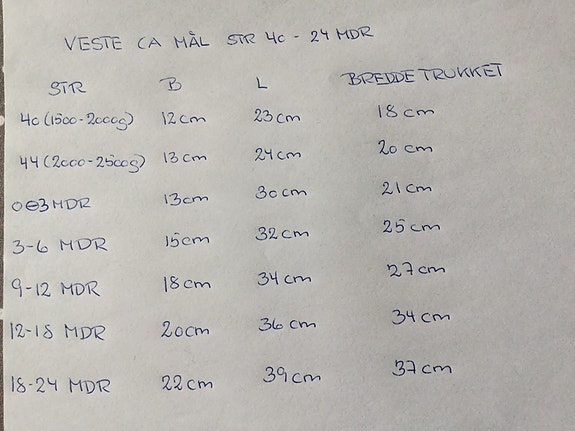 VESTE CA MÅL STR 40 - 24 MDR
STR B L BREDDE TRUKKET
40 (1500-2000g) 12 cm 23 cm 18 cm
44 (2000-2500g) 13 cm 24 cm 20 cm
0-3 MDR 13 cm 30 cm 21 cm
3-6 MDR 15 cm 32 cm 25 cm
9-12 MDR 18 cm 34 cm 27 cm
12-18 MDR 20 cm 36 cm 34 cm
18-24 MDR 22 cm 39 cm 37 cm